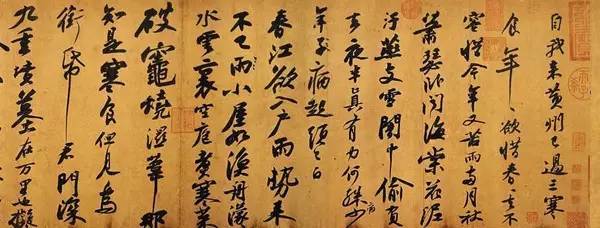 自我來黃州已過三寒
食年〻欲惜春〻去不
容惜今年又苦雨兩月秋
蕭瑟卧聞海棠花泥
汙燕支雪闇中偷負
去夜半真有力何殊病少
年子病起頭已白
春江欲入户雨勢來
不已雨小屋如漁舟濛〻
水雲裏空庖煮寒菜
破竈燒濕葦那
知是寒食但見烏
銜帋君門深
九重墳墓在万里也擬